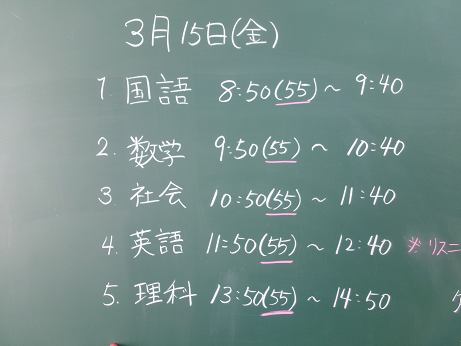 3月15日(金)
1. 国語 8:50(55)~ 9:40
2. 数学 9:50(55)~ 10:40
3. 社会 10:50(55)~ 11:40
4. 英語 11:50(55)~ 12:40 ※リスニ
5. 理科 13:50(55)~ 14:50